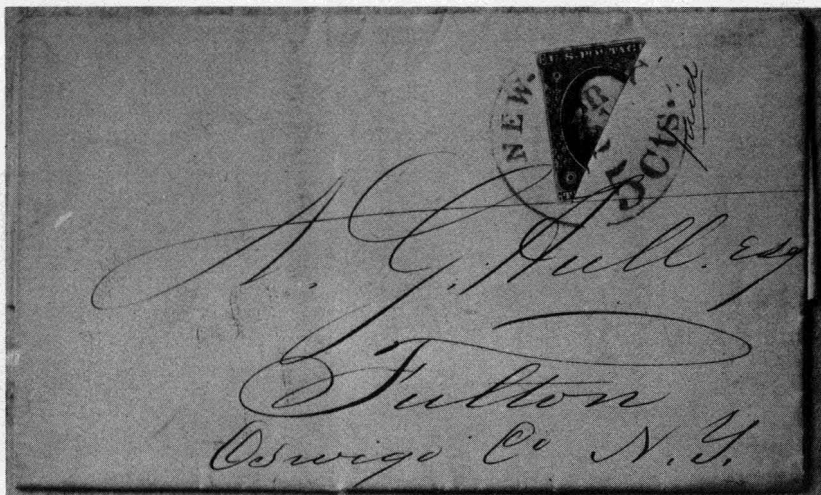 U.S. POSTAG
NEW.
5 Cts.
Paid
A. G. Hull. Esq
Fulton
Oswigo Co N. Y.